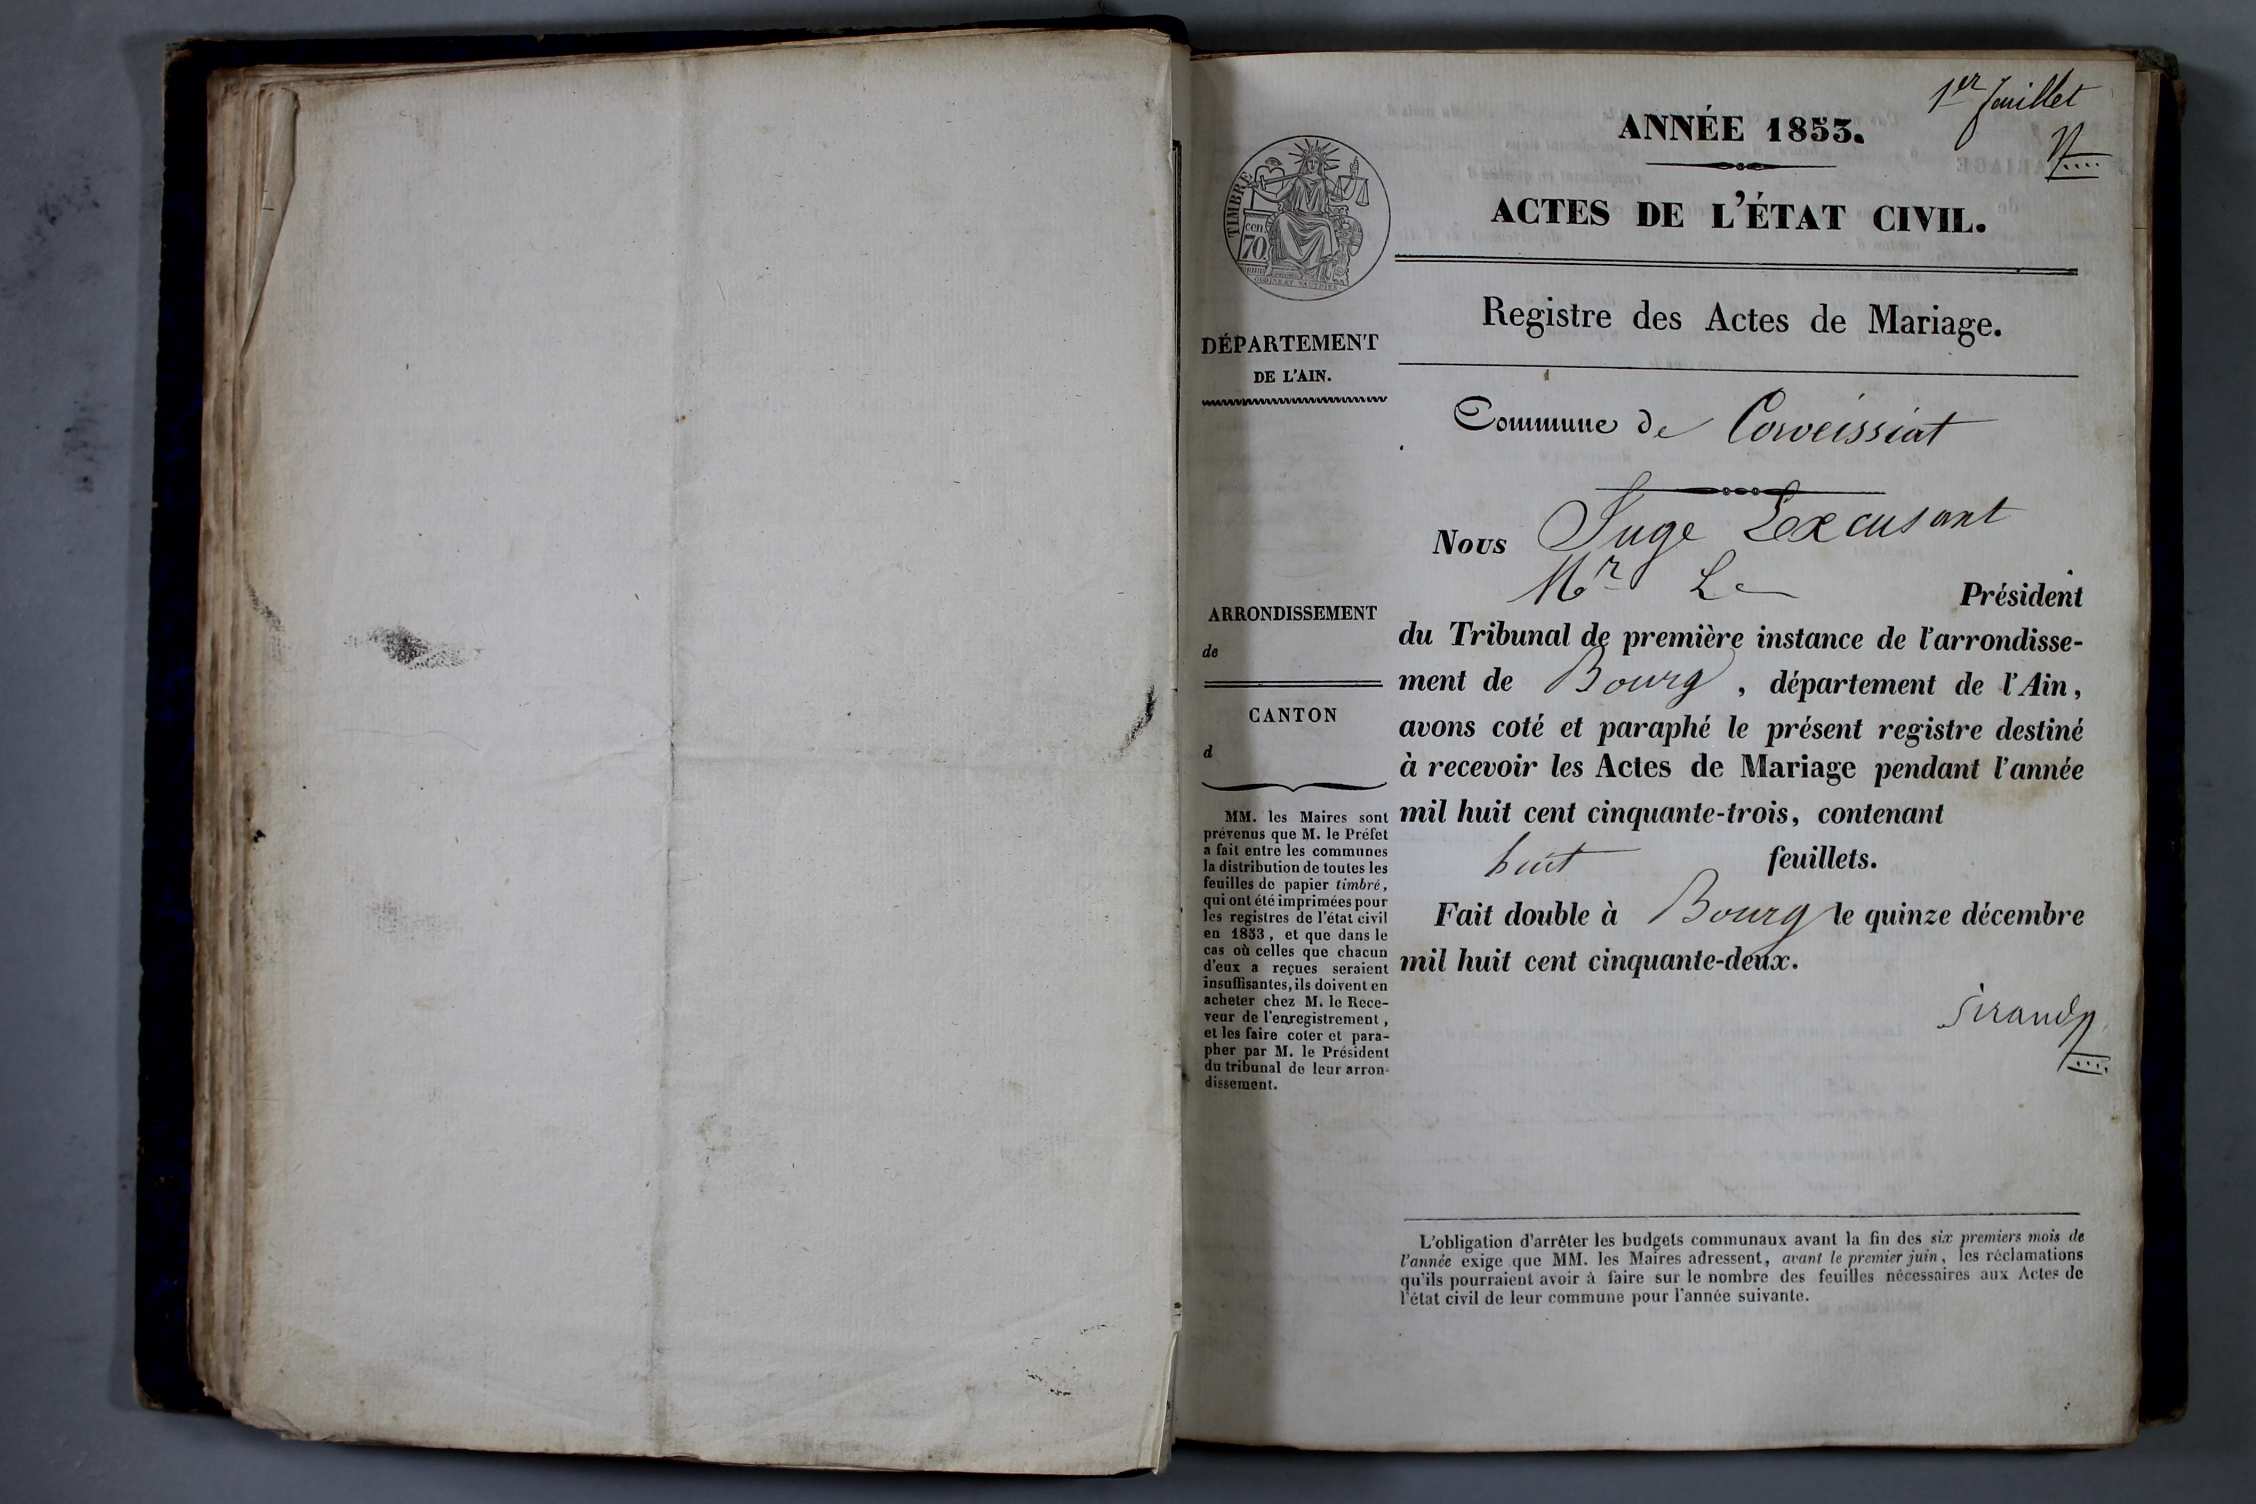 1er feuillet
ANNÉE 1853.
ACTES DE L'ÉTAT CIVIL.
TIMBRE
cen.
70
Registre des Actes de Mariage.
DÉPARTEMENT
DE L'AIN.
Commune de Corveissiat
Nous Juge Excusant
Mr Le Président
du Tribunal de première instance de l'arrondisse-
ment de Bourg, département de l'Ain,
avons coté et paraphé le présent registre destiné
à recevoir les Actes de Mariage pendant l'année
mil huit cent cinquante-trois, contenant
huit feuillets.
Fait double à Bourg le quinze décembre
mil huit cent cinquante-deux.
Sirand
ARRONDISSEMENT
de
CANTON
d
MM. les Maires sont
prévenus que M. le Préfet
a fait entre les communes
la distribution de toutes les
feuilles de papier timbré,
qui ont été imprimées pour
les registres de l'état civil
en 1853, et que dans le
cas où celles que chacun
d'eux a reçues seraient
insuffisantes, ils doivent en
acheter chez M. le Rece-
veur de l'enregistrement,
et les faire coter et para-
pher par M. le Président
du tribunal de leur arron-
dissement.
L'obligation d'arrêter les budgets communaux avant la fin des six premiers mois de
l'année exige que MM. les Maires adressent, avant le premier juin, les réclamations
qu'ils pourraient avoir à faire sur le nombre des feuilles nécessaires aux Actes de
l'état civil de leur commune pour l'année suivante.